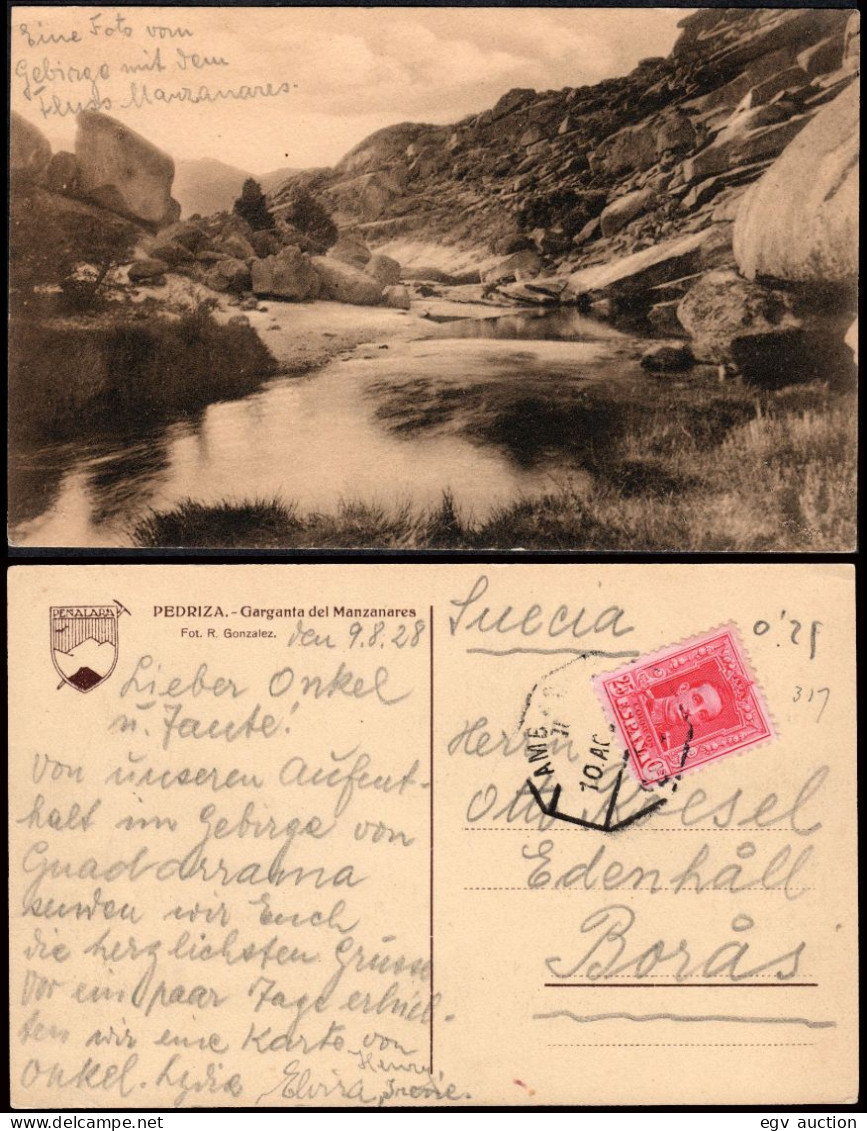 Eine Foto vom
Gebirge mit dem
Fluss Manzanares.
PEÑALARA
PEDRIZA.-Garganta del Manzanares
Fot. R. Gonzalez.
den 9.8.28
Lieber Onkel
u. Tante!
von unseren Aufent-
halt im Gebirge von
Guadarrama
senden wir Euch
die herzlichsten Grüsse
Vor ein paar Tage erhiel-
ten wir eine Karte von
Onkel. Lydia Elvira, Henry
Irene.
Suecia
0'25
317
25 Cs
ESPAÑA
AMB.
10.AG
Herrn
Otto Koesel
Edenhåll
Borås
egv auction